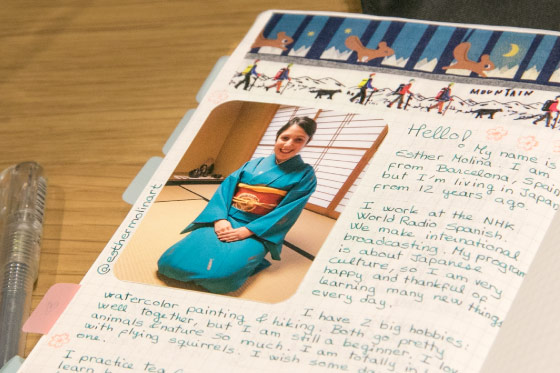 MOUNTAIN
Hello! My name is
Esther Molina. I am
from Barcelona, Spain
but I'm living in Japan
from 12 years ago.
I work at the NHK
World Radio Spanish.
We make international
broadcasting. My program
is about Japanese
culture, so I am very
happy and thankful of
learning many new things
every day.
@esthermolinart
I have 2 big hobbies:
watercolor painting & hiking. Both go pretty
well together, but I am still a beginner. I love
animals & nature so much. I am totally in
with flying squirrels. I wish some day
one.
I practice tea
learn